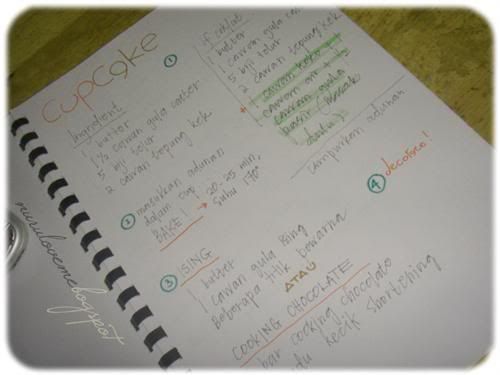 cupcake
1
Ingredient
1 butter
1 ½ cawan gula caster
5 biji telur
2 cawan tepung kek
if coklat
1 butter
cawan gula
5 biji telur
2 cawan tepung kek
+ cawan koko +
cawan air +
cawan gula
pasir (masak
dahulu)
campurkan adunan
2 masukkan adunan
dalam cup
BAKE! → 20-25 min,
suhu 170°
3 ISING
1 butter
1 cawan gula ising
Beberapa titik pewarna
ATAU
COOKING CHOCOLATE
bar cooking chocolate
kecik shortening
4 decorate!
nuruloveme.blogspot